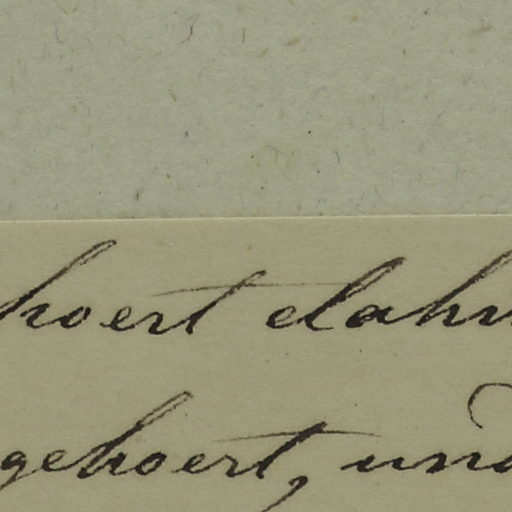 hoert dahn
gehoert, und